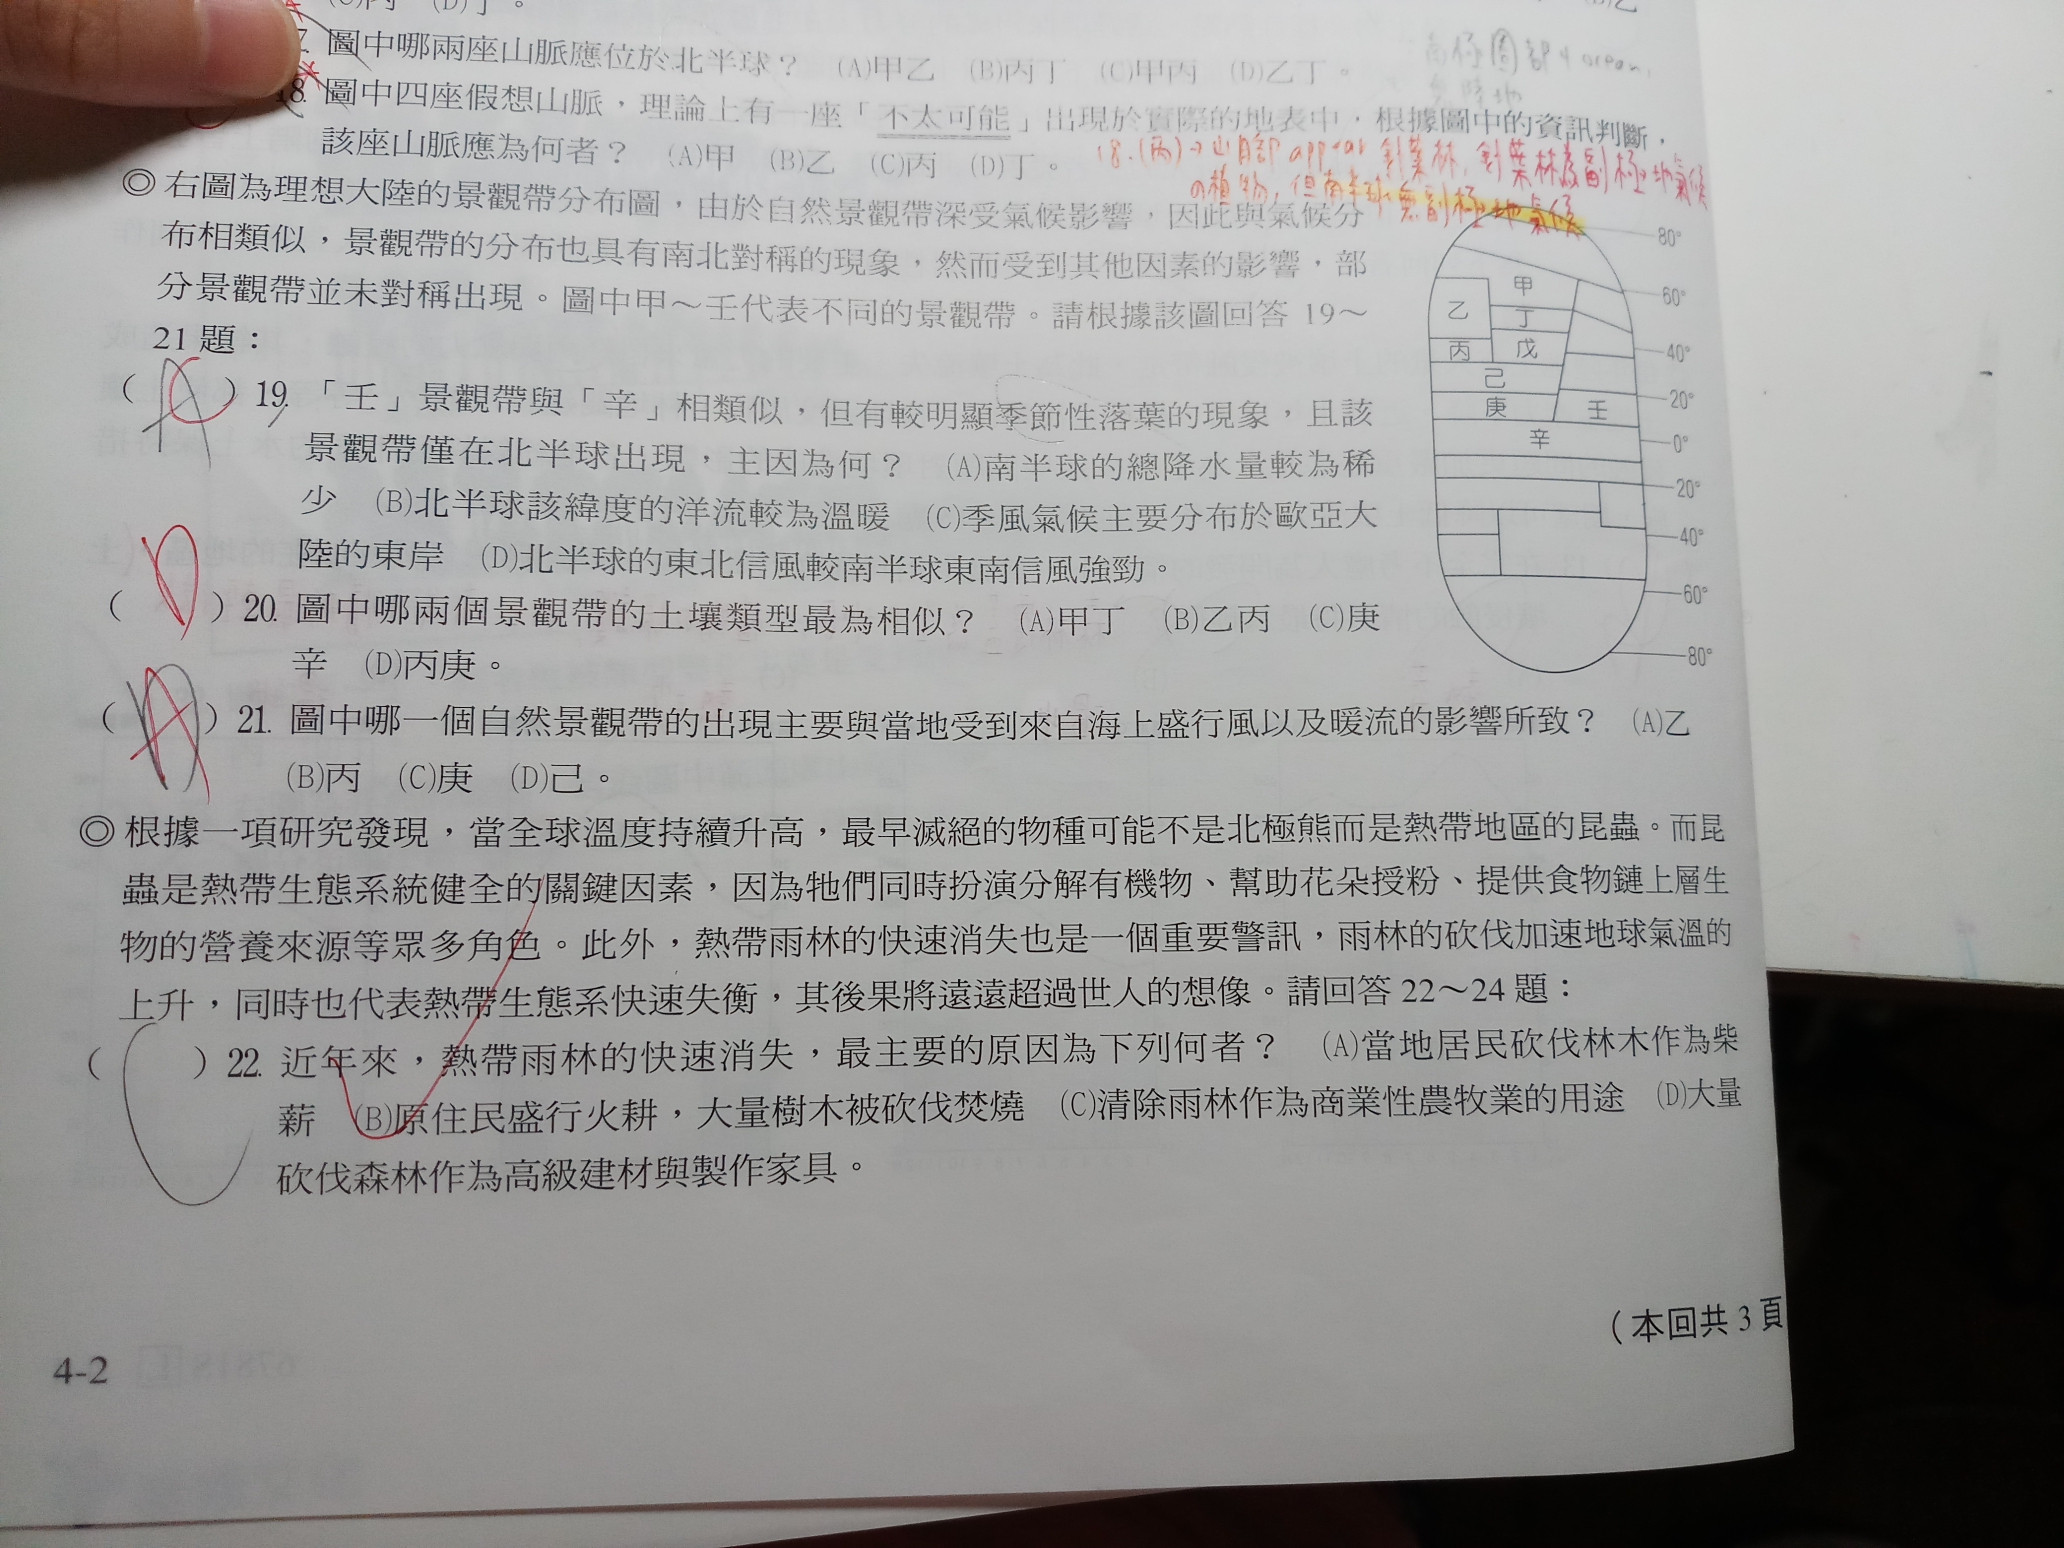 (C)丙　(D)丁。
圖中哪兩座山脈應位於北半球？　(A)甲乙　(B)丙丁　(C)甲丙　(D)乙丁。
18. 圖中四座假想山脈，理論上有一座「不太可能」出現於實際的地表中，根據圖中的資訊判斷，
該座山脈應為何者？　(A)甲　(B)乙　(C)丙　(D)丁。
18.(丙)→山月部 appear 針葉林，針葉林為副極地氣候
の植物，但南半球無副極地氣候
◎右圖為理想大陸的景觀帶分布圖，由於自然景觀帶深受氣候影響，因此與氣候分
布相類似，景觀帶的分布也具有南北對稱的現象，然而受到其他因素的影響，部
分景觀帶並未對稱出現。圖中甲～壬代表不同的景觀帶。請根據該圖回答 19～
21 題：
80°
60°
40°
20°
0°
20°
40°
60°
80°
甲
乙
丁
丙
戊
己
庚
壬
辛
( C ) 19. 「壬」景觀帶與「辛」相類似，但有較明顯季節性落葉的現象，且該
景觀帶僅在北半球出現，主因為何？　(A)南半球的總降水量較為稀
少　(B)北半球該緯度的洋流較為溫暖　(C)季風氣候主要分布於歐亞大
陸的東岸　(D)北半球的東北信風較南半球東南信風強勁。
( D ) 20. 圖中哪兩個景觀帶的土壤類型最為相似？　(A)甲丁　(B)乙丙　(C)庚
辛　(D)丙庚。
( A ) 21. 圖中哪一個自然景觀帶的出現主要與當地受到來自海上盛行風以及暖流的影響所致？　(A)乙
(B)丙　(C)庚　(D)己。
◎根據一項研究發現，當全球溫度持續升高，最早滅絕的物種可能不是北極熊而是熱帶地區的昆蟲。而昆
蟲是熱帶生態系統健全的關鍵因素，因為牠們同時扮演分解有機物、幫助花朵授粉、提供食物鏈上層生
物的營養來源等眾多角色。此外，熱帶雨林的快速消失也是一個重要警訊，雨林的砍伐加速地球氣溫的
上升，同時也代表熱帶生態系快速失衡，其後果將遠遠超過世人的想像。請回答 22～24 題：
( C ) 22. 近年來，熱帶雨林的快速消失，最主要的原因為下列何者？　(A)當地居民砍伐林木作為柴
薪　(B)原住民盛行火耕，大量樹木被砍伐焚燒　(C)清除雨林作為商業性農牧業的用途　(D)大量
砍伐森林作為高級建材與製作家具。
(本回共 3 頁
4-2